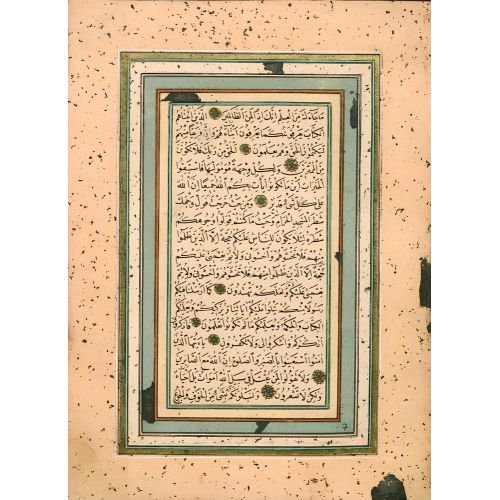 ما جاءك من العلم انك اذا لمن الظالمين الذين اتيناهم
الكتاب يعرفونه كما يعرفون ابناءهم وان فريقا منهم
ليكتمون الحق وهم يعلمون الحق من ربك فلا تكونن
من الممترين ولكل وجهة هو موليها فاستبقوا
الخيرات اين ما تكونوا يأت بكم الله جميعا ان الله
على كل شيء قدير ومن حيث خرجت فول وجهك
شطر المسجد الحرام وحيث ما كنتم فولوا وجوهكم
شطره لئلا يكون للناس عليكم حجة الا الذين ظلموا
منهم فلا تخشوهم واخشوني ولاتم نعمتي عليكم
حجة الا الذين ظلموا منهم فلا تخشوهم واخشوني ولاتم
نعمتي عليكم ولعلكم تهتدون كما ارسلنا فيكم
رسولا منكم يتلوا عليكم اياتنا ويزكيكم ويعلمكم
الكتاب والحكمة ويعلمكم ما لم تكونوا تعلمون فاذكروني
اذكركم واشكروا لي ولا تكفرون يا ايها الذين
امنوا استعينوا بالصبر والصلوة ان الله مع الصابرين
ولا تقولوا لمن يقتل في سبيل الله اموات بل احياء
ولكن لا تشعرون ولنبلونكم بشيء من الخوف والجوع